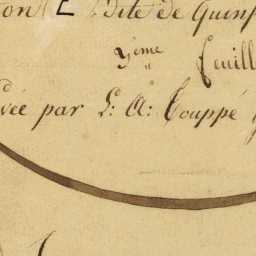 on E dite de Quinf
3eme Feuill
vée par L: A: Couppé